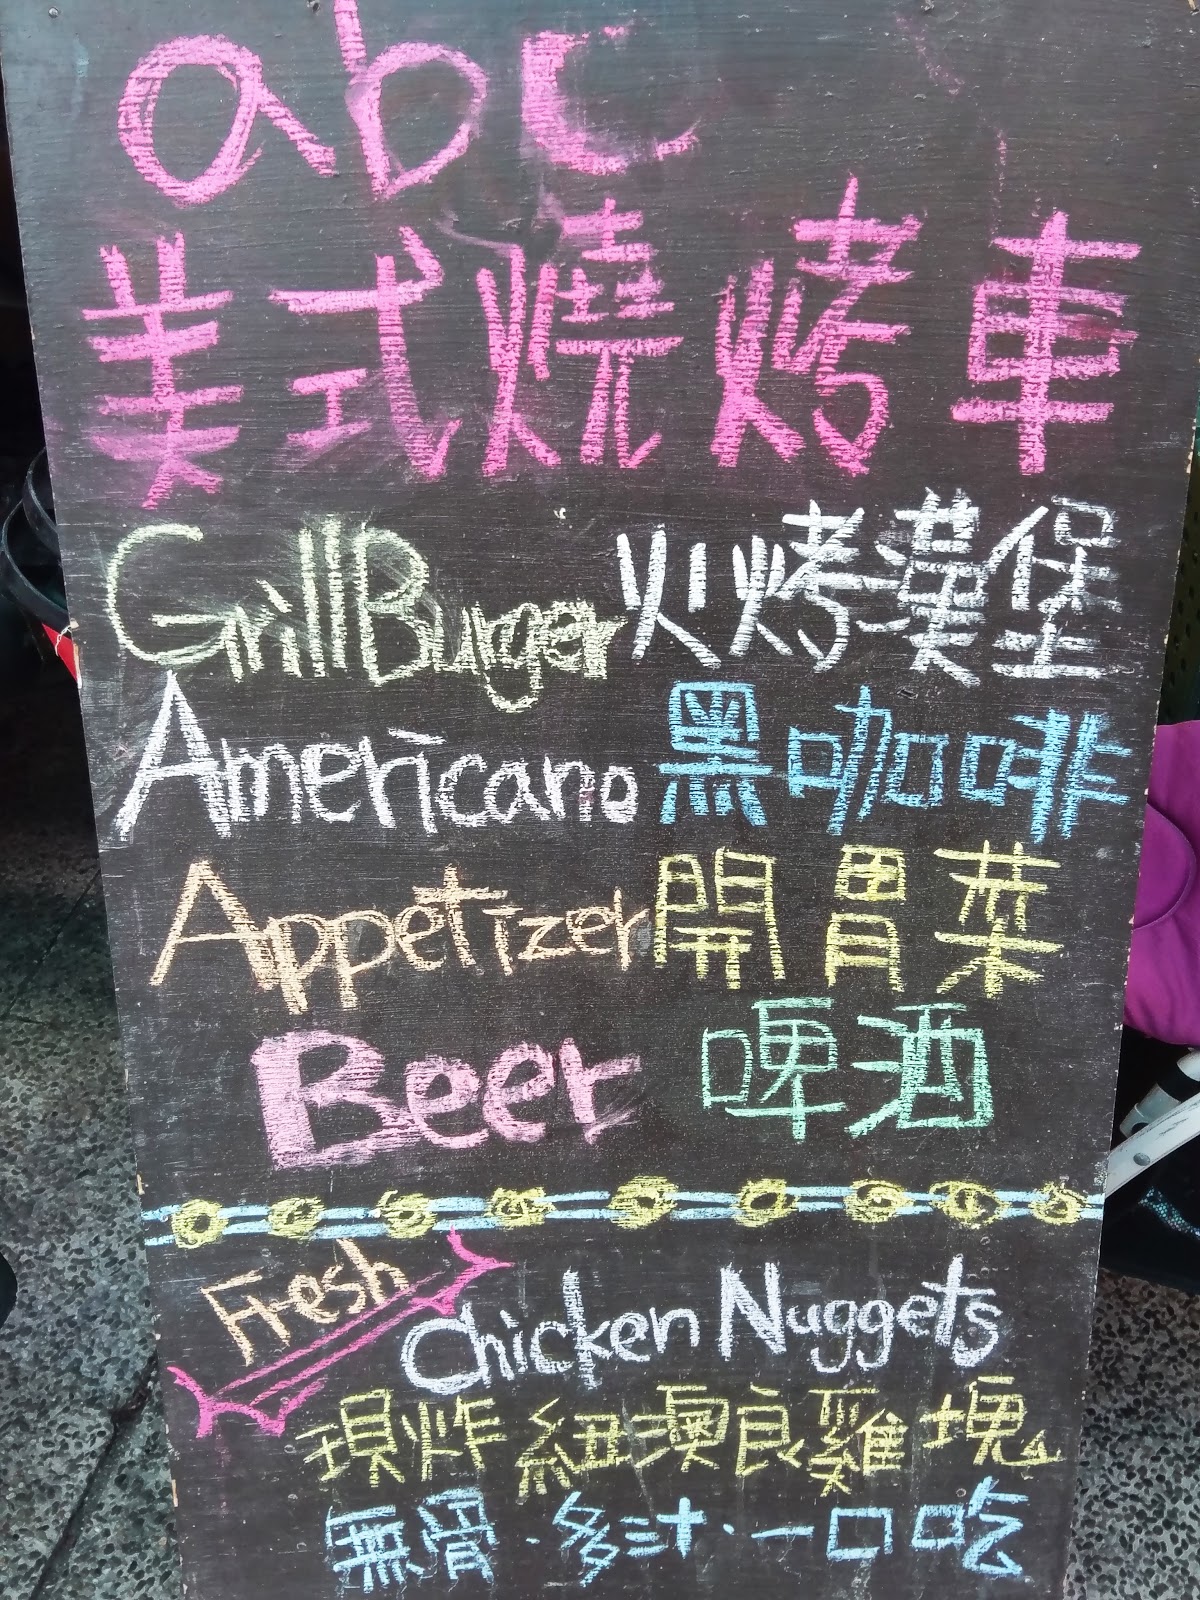 abc
美式燒烤車
Grill Burger 火烤漢堡
Americano 黑咖啡
Appetizer 開胃菜
Beer 啤酒
Fresh
Chicken Nuggets
現炸紐澳良雞塊
無骨·多汁·一口吃